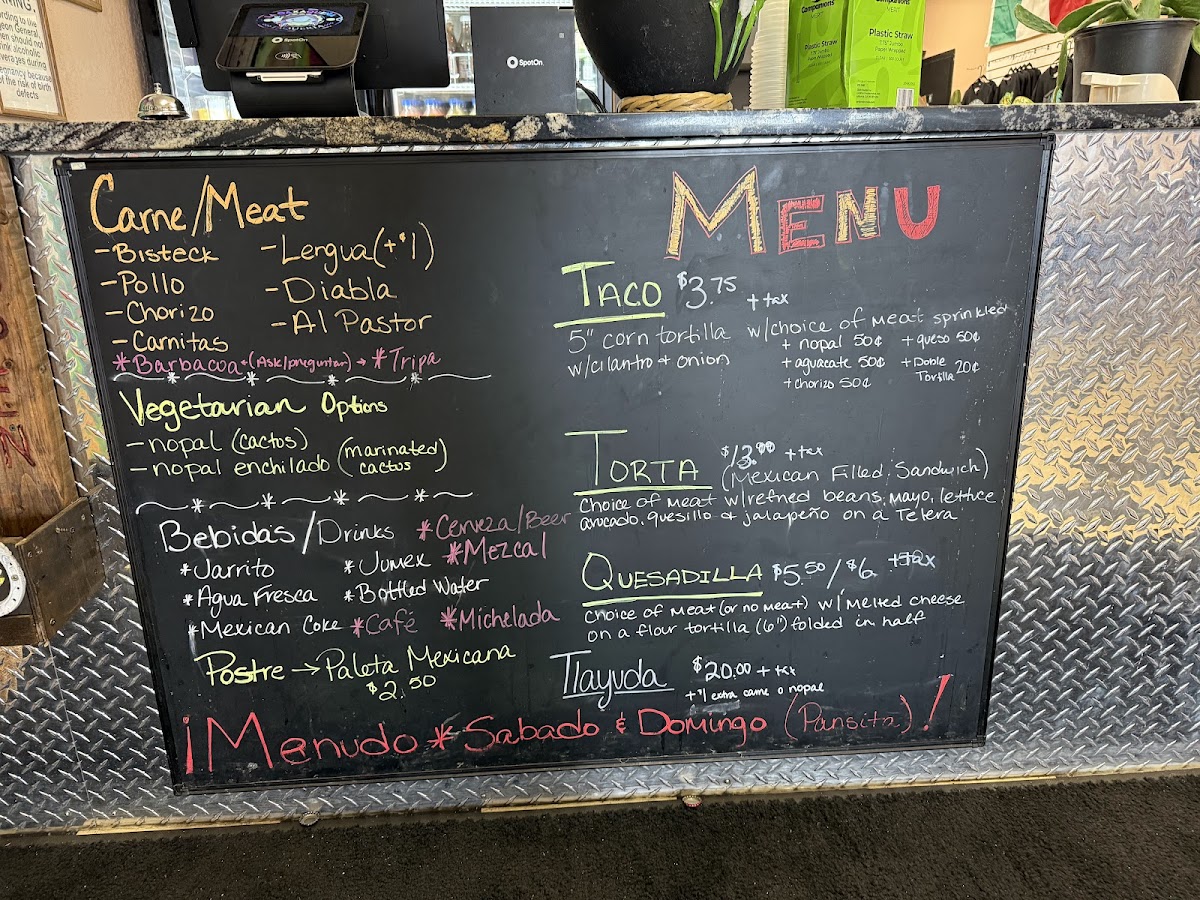 ARNING.
ording to the
geon General,
en should not
rink alcoholic
verages during
egnancy because
of the risk of birth
defects
SpotOn
SpotOn
Companions
Plastic Straw
Companions
Plastic Straw
Carne/Meat
-Bisteck
-Pollo
-Chorizo
-Carnitas
-Lengua (+$1)
-Diabla
-Al Pastor
*Barbacoa*(Ask/preguntar)→ *Tripa
Vegetarian Options
-nopal (cactos)
-nopal enchilado (marinated cactus)
Bebidas/Drinks
*Jarrito
*Agua Fresca
*Mexican Coke
*Jumex
*Bottled Water
*Café
*Cerveza/Beer
*Mezcal
*Michelada
Postre → Paleta Mexicana
$2.50
MENU
TACO $3.75 + tax
5" corn tortilla w/choice of meat sprinkled
w/cilantro + onion
+ nopal 50¢
+ aguacate 50¢
+ chorizo 50¢
+ queso 50¢
+ Doble Tortilla 20¢
TORTA $13.00 + tax
(Mexican Filled Sandwich)
choice of meat w/refried beans, mayo, lettuce
avocado, quesillo & jalapeño on a Telera
QUESADILLA $5.50/$6 + tax
choice of meat (or no meat) w/ melted cheese
on a flour tortilla (6") folded in half
Tlayuda $20.00 + tax
+$1 extra carne o nopal
¡Menudo * Sabado & Domingo (Pansita)!